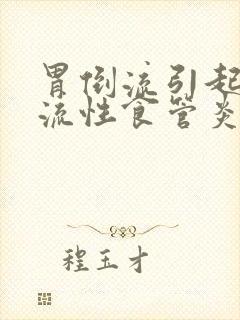 胃倒流引起
流性食管炎
程玉才